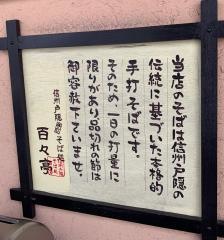 当店のそばは信州戸隠の
伝統に基づいた本格的
手打そばです。
そのため、一日の打量に
限りがあり品切れの節は
御容赦下ていませ。
信州戸隠流そば処
百々亭